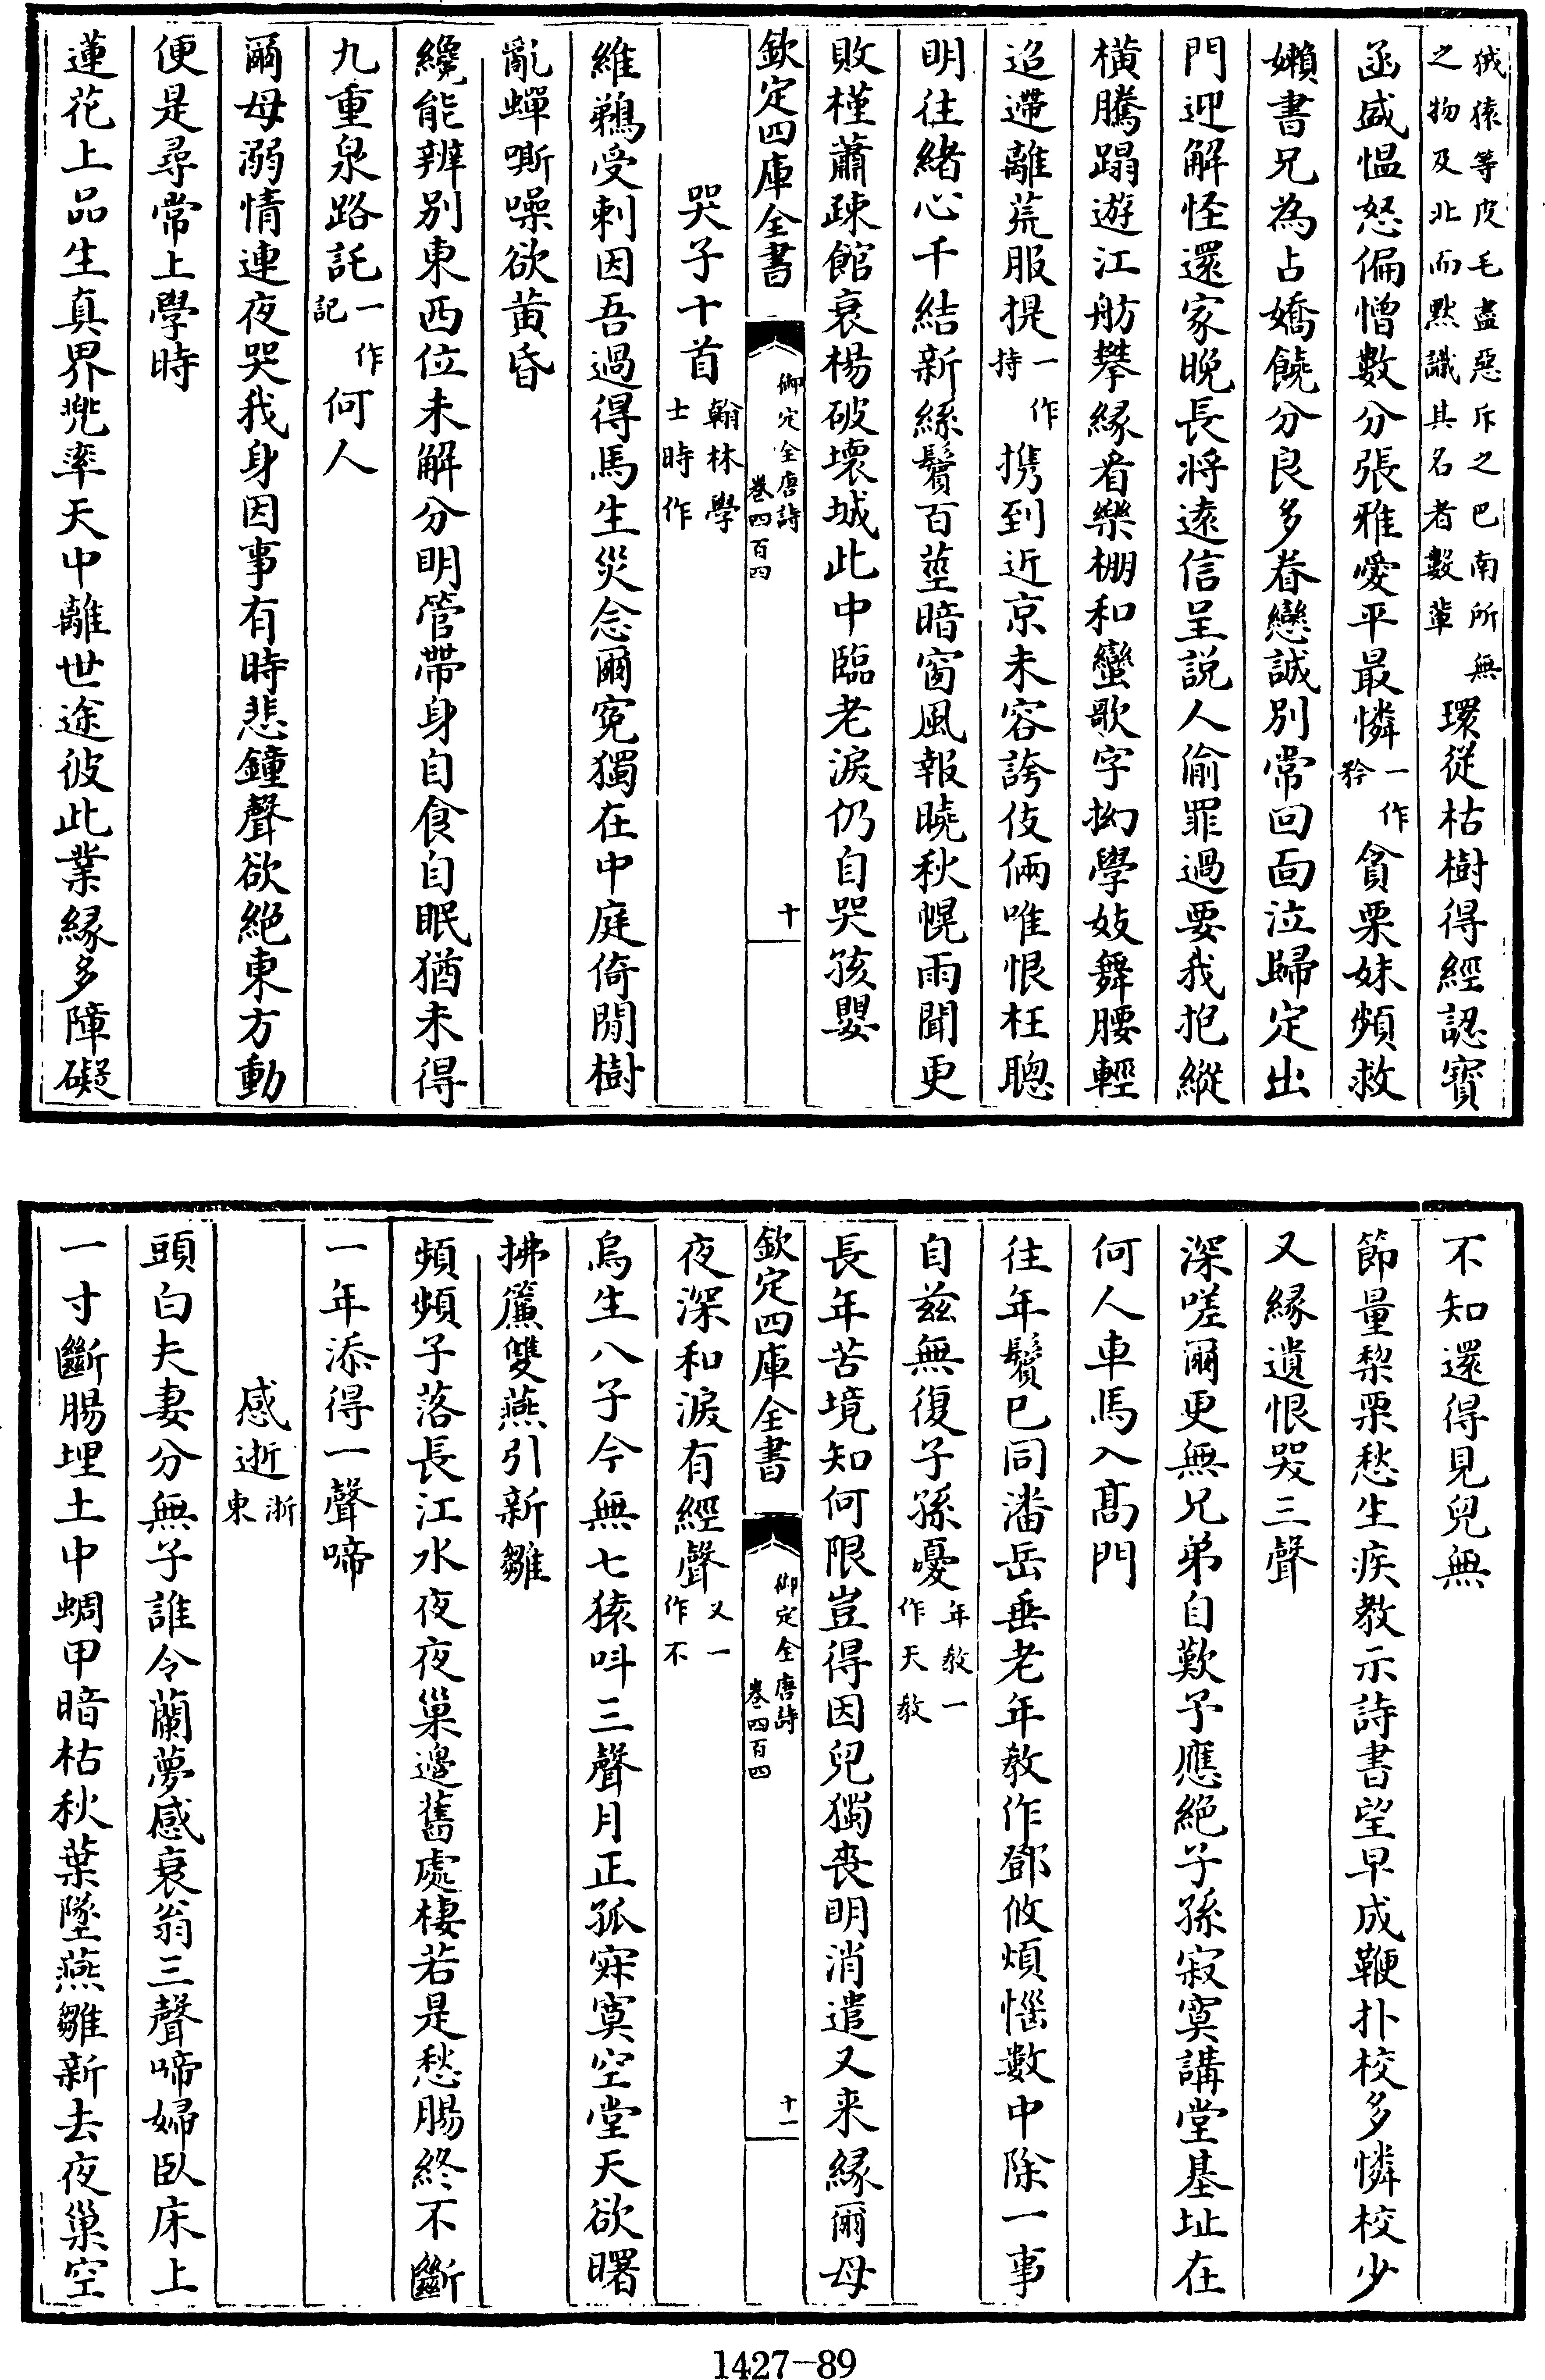 狨猿等皮毛盡惡斥之巴南所無
之物及北而默識其名者數軰
環從枯樹得經認寳
函盛愠怒偏憎數分張雅愛平最憐一作矜貪栗妹頻救
嬾書兄為占嬌饒分良多眷戀誠別常回面泣歸定出
門迎解怪還家晚長将逺信呈説人偷罪過要我抱縱
横騰蹋遊江舫攀縁看樂棚和蠻歌字拗學妓舞腰輕
迢遰離荒服提一作持携到近京未容誇伎倆唯恨枉聰
明往緒心千結新絲鬢百莖暗窗風報曉秋幌雨聞更
敗槿蕭疎館衰楊破壞城此中臨老淚仍自哭孩嬰
欽定四庫全書
御定全唐詩
卷四百四
十
哭子十首翰林學士時作
維鵜受刺因吾過得馬生災念爾寃獨在中庭倚閒樹
亂蟬嘶噪欲黄昏
纔能辨別東西位未解分明管帶身自食自眠猶未得
九重泉路託一作記何人
爾母溺情連夜哭我身因事有時悲鐘聲欲絶東方動
便是尋常上學時
蓮花上品生真界兠率天中離世途彼此業縁多障礙
不知還得見兒無
節量梨栗愁生疾教示詩書望早成鞭扑校多憐校少
又縁遺恨哭三聲
深嗟爾更無兄弟自歎予應絶子孫寂寞講堂基址在
何人車馬入髙門
往年鬢已同潘岳垂老年教作鄧攸煩惱數中除一事
自兹無復子孫憂年教一作天教
長年苦境知何限豈得因兒獨喪明消遣又来縁爾母
欽定四庫全書
御定全唐詩
卷四百四
十一
夜深和淚有經聲又一作不
烏生八子今無七猿呌三聲月正孤寂寞空堂天欲曙
拂簾雙燕引新雛
頻頻子落長江水夜夜巢邉舊處棲若是愁腸終不斷
一年添得一聲啼
感逝浙東
頭白夫妻分無子誰令蘭夢感衰翁三聲啼婦臥床上
一寸斷腸埋土中蜩甲暗枯秋葉墜燕雛新去夜巢空
1427-89